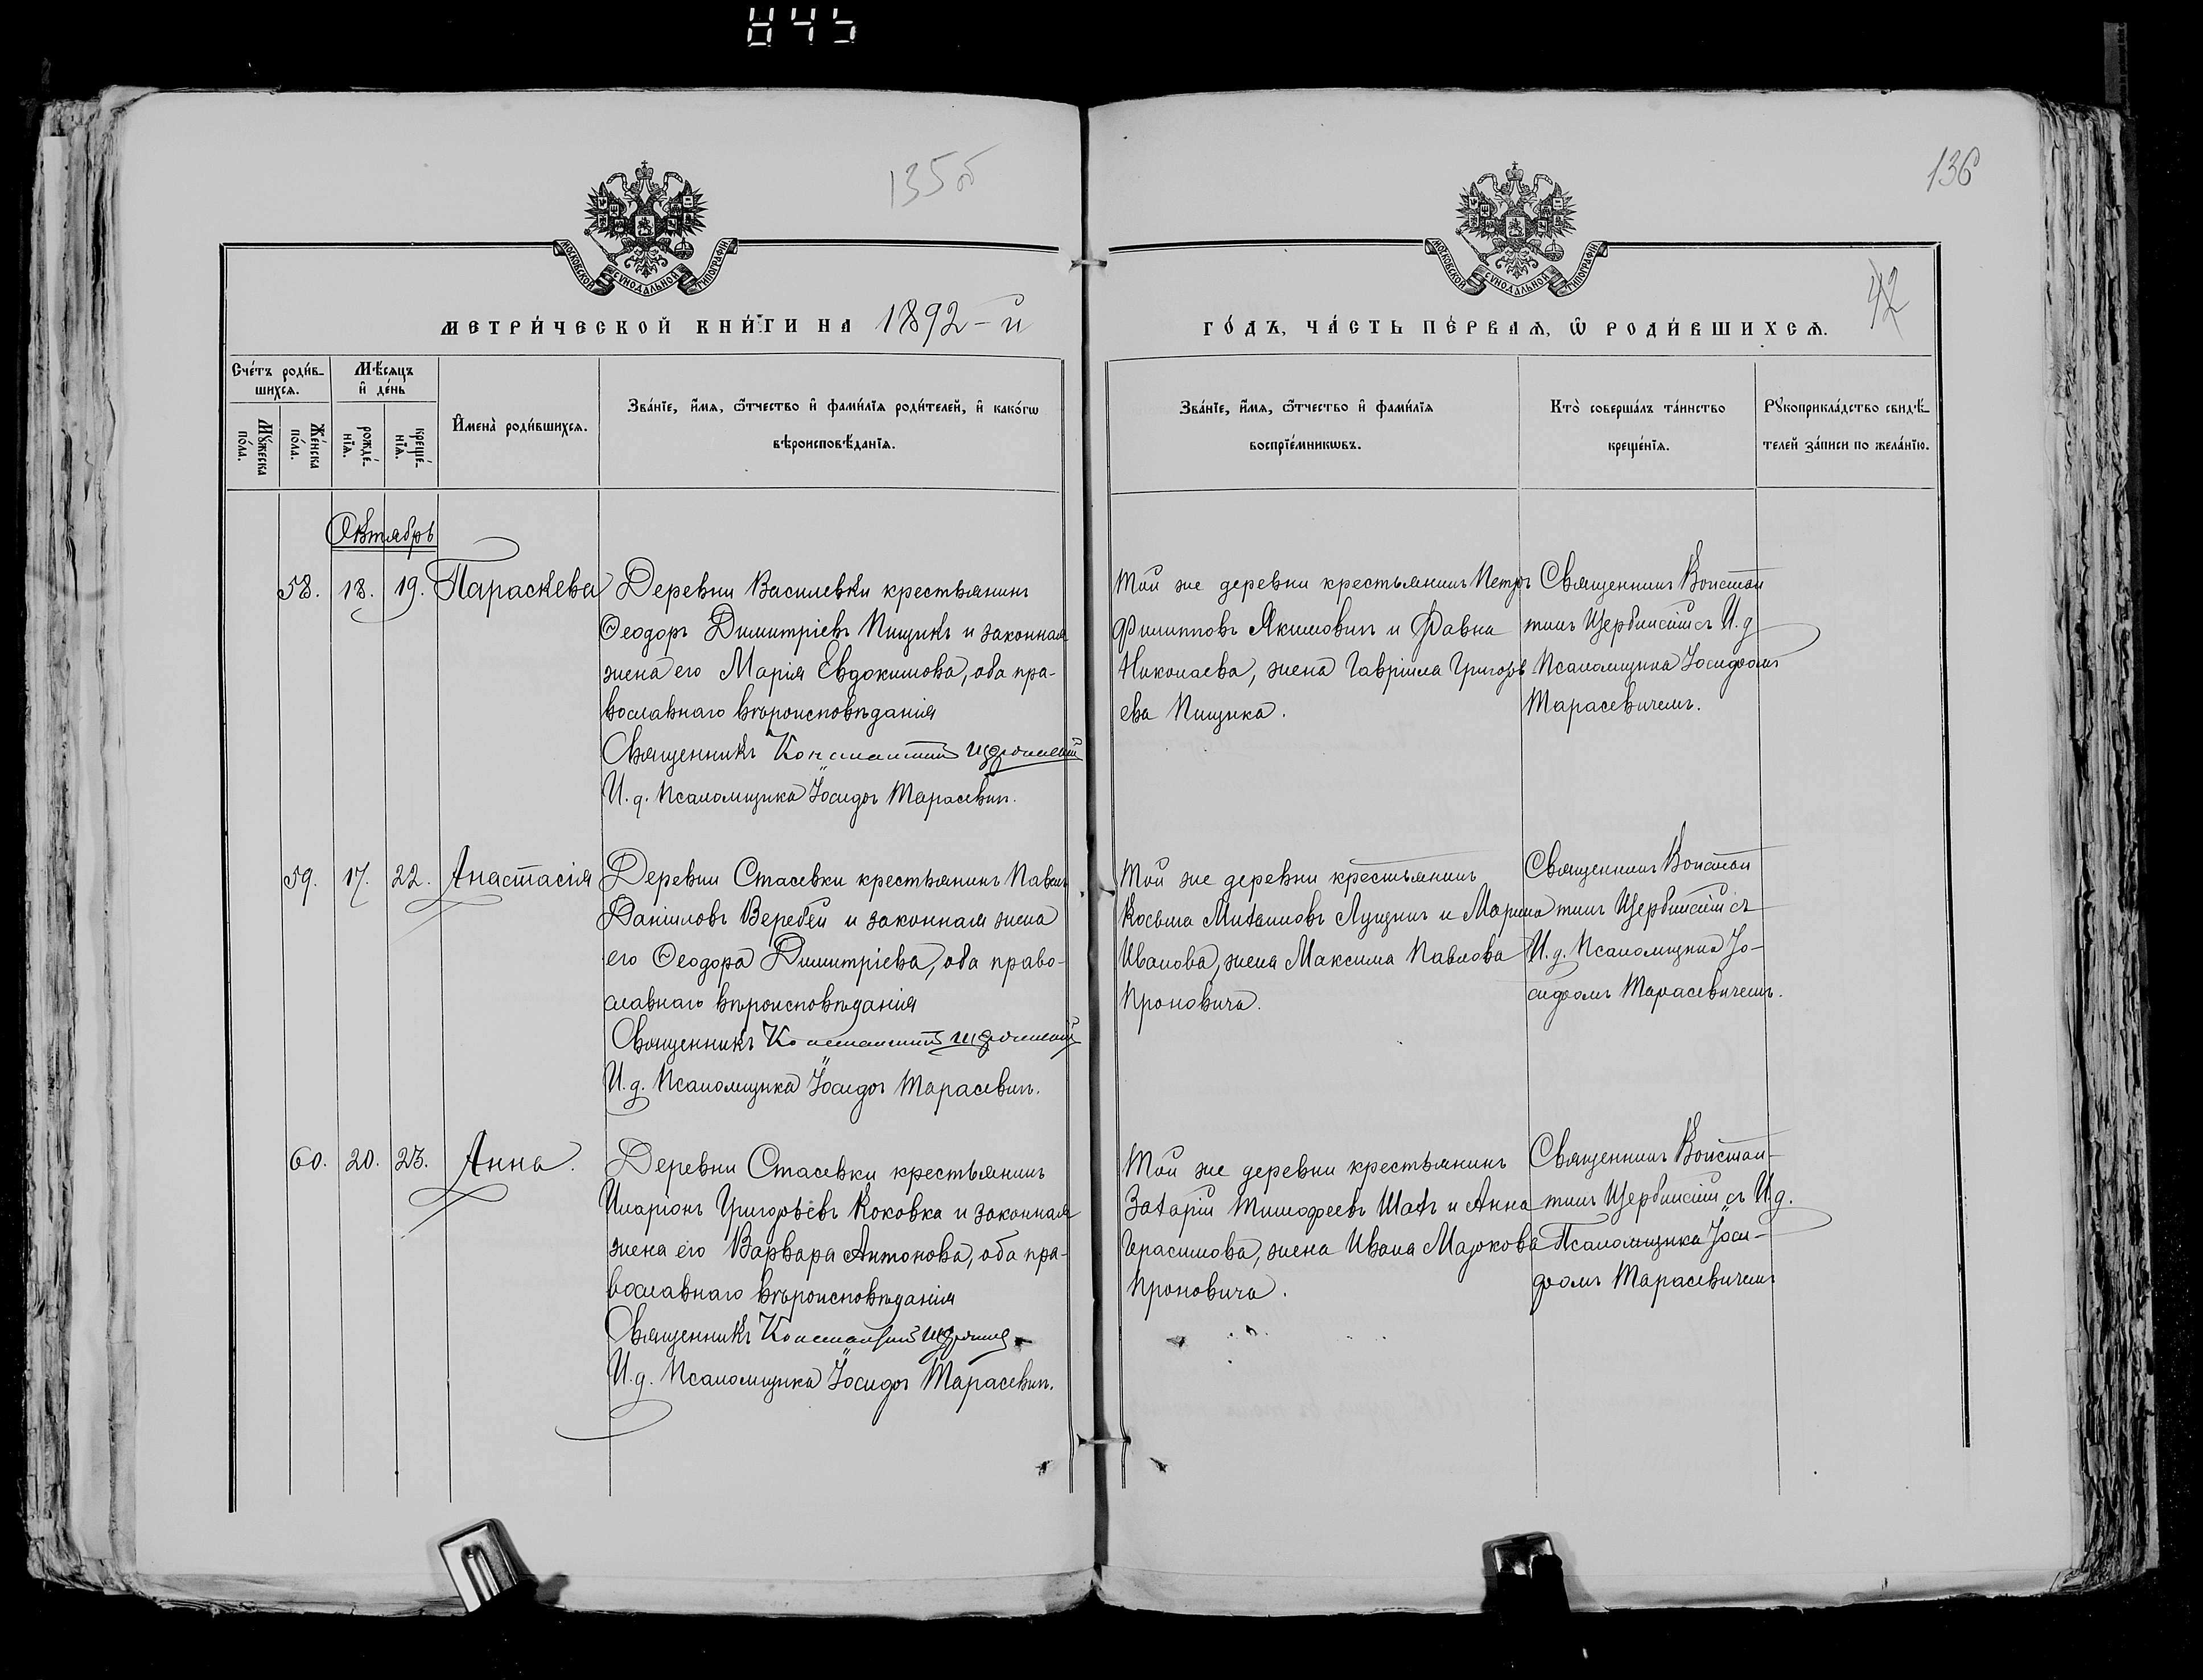 845
135об
136
42
МОСКОВСКОЙ СУНОДАЛЬНОЙ ТИПОГРАФІИ
МОСКОВСКОЙ СУНОДАЛЬНОЙ ТИПОГРАФІИ
МЕТРИ́ЧЕСКОЙ КНИ́ГИ НА 1892-й
ГО́ДЪ, ЧА́СТЬ ПЕ́РВАѦ, Ѿ РОДИ́ВШИХСѦ.
Сче́тъ роди́в-
шихсѧ.
Мꙋ́жеска по́ла.
Же́нска по́ла.
Мѣ́сѧцъ
и҆ де́нь
рожде́-
нїѧ.
креще́-
нїѧ.
И҆мена̀ роди́вшихсѧ.
Зва́нїе, и҆́мѧ, ѻ҆́тчество и҆ фами́лїѧ роди́телей, и҆ како́гѡ
вѣроисповѣ́данїѧ.
Зва́нїе, и҆́мѧ, ѻ҆́тчество и҆ фами́лїѧ
воспрїе́мникѡвъ.
Кто̀ соверша́лъ та́инство
креще́нїѧ.
Рꙋкоприкла́дство свидѣ́-
телей за́писи по жела́нїю.
Октябрь
58. 18. 19. Параскева
Деревни Василевки крестьянинъ
Ѳеодоръ Димитріевъ Пищикъ и законная
жена его Марія Евдокимова, оба пра-
вославнаго вѣроисповѣданія
Священникъ Константинъ Щербинскій
И. д. Псаломщика Іосифъ Тарасевич.
Той же деревни крестьянинъ Петръ
Филипповъ Якимовичъ и Фавна
Николаева, жена Гавріила Григорь-
ева Пищика.
Священникъ Констан
тинъ Щербинскій съ И. д
Псаломщика Іосифомъ
Тарасевичемъ.
59. 17. 22. Анастасія
Деревни Стасевки крестьянинъ Павелъ
Даніиловъ Веребей и законная жена
его Ѳеодора Димитріева, оба право-
славнаго вѣроисповѣданія
Священникъ Константинъ Щербинскій
И. д. Псаломщика Іосифъ Тарасевич.
Той же деревни крестьянинъ
Косьма Михаиловъ Лущикъ и Марина
Иванова, жена Максима Павлова
Проновича.
Священникъ Констан
тинъ Щербинскій съ
И. д. Псаломщика Іо-
сифомъ Тарасевичемъ.
60. 20. 23. Анна.
Деревни Стасевки крестьянинъ
Иларіонъ Григорьевъ Коковка и законная
жена его Варвара Антонова, оба пра-
вославнаго вѣроисповѣданія
Священникъ Константинъ Щербинскій
И. д. Псаломщика Іосифъ Тарасевич.
Той же деревни крестьянинъ
Захарій Тимофеевъ Шахъ и Анна
Герасимова, жена Ивана Маркова
Проновича.
Священникъ Констан-
тинъ Щербинскій съ И. д.
Псаломщика Іоси-
фомъ Тарасевичемъ